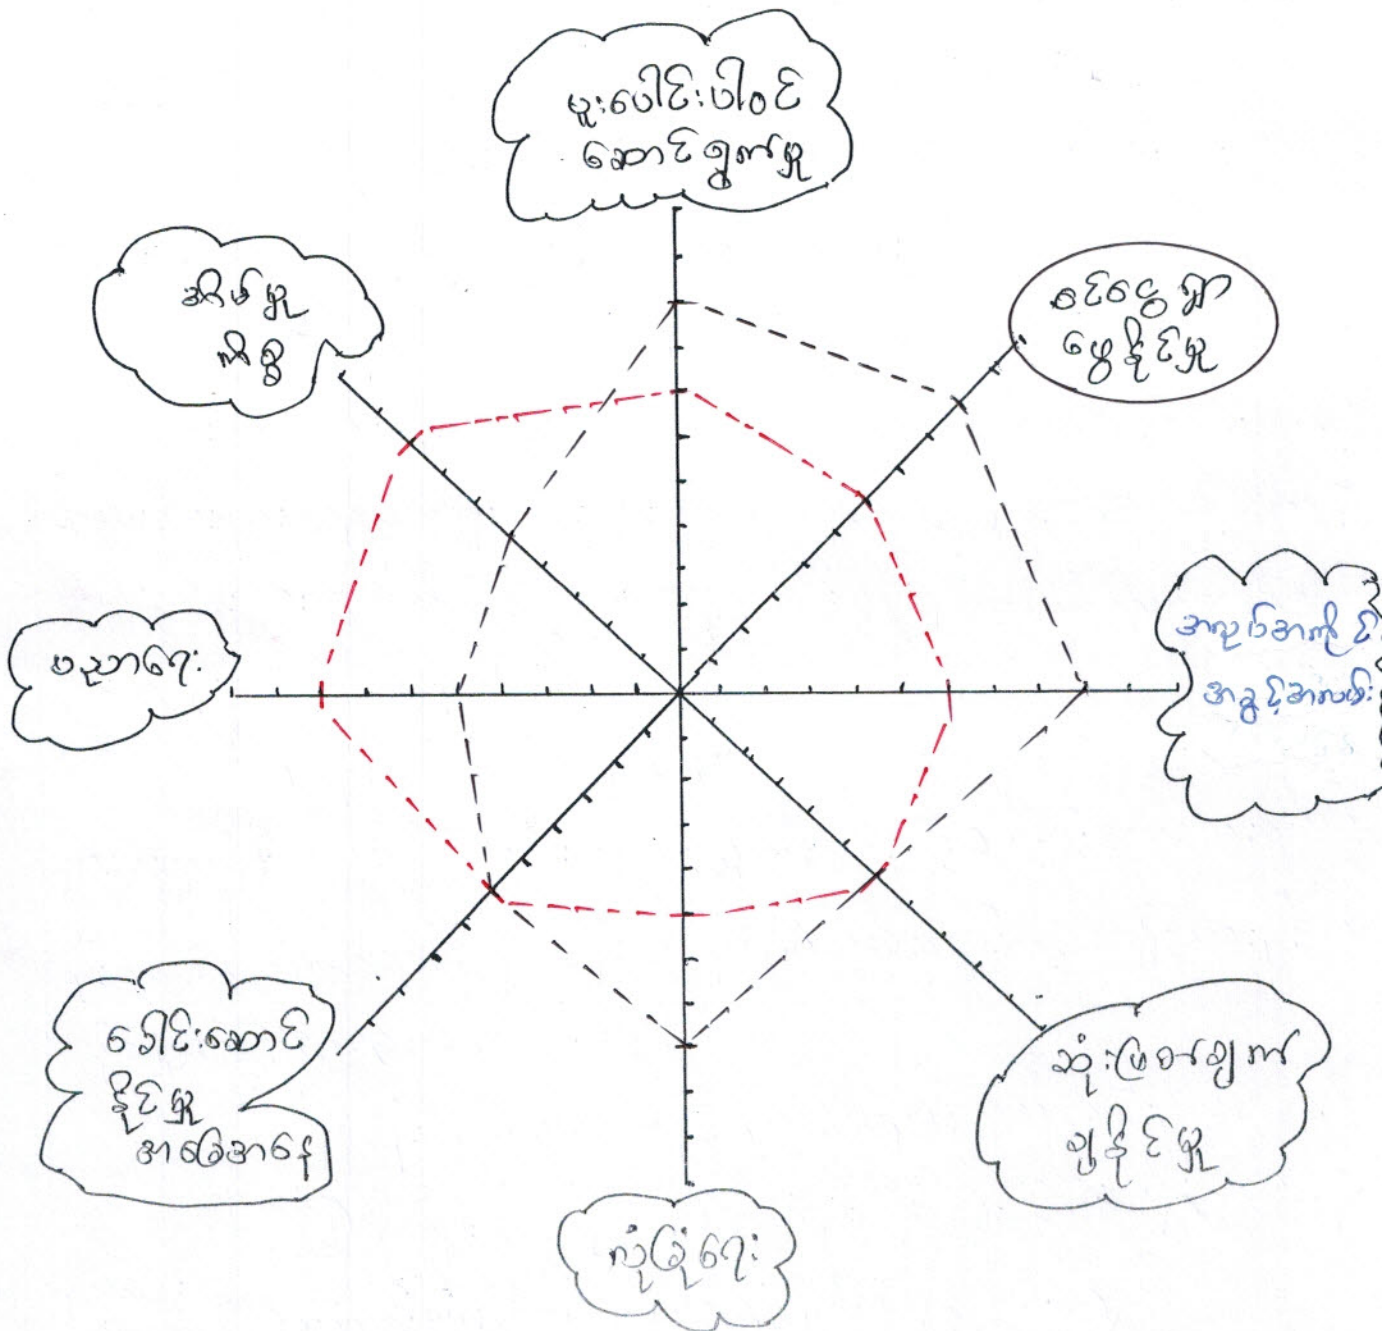 ပူးပေါင်းပါဝင်
ဆောင်ရွက်မှု
ဝင်ငွေရှာ
ဖွေနိုင်မှု
အလုပ်အကိုင်
အခွင့်အလမ်း
ဆုံးဖြတ်ချက်
ချနိုင်မှု
လုံခြုံရေး
ခေါင်းဆောင်
နိုင်မှု
အခြေအနေ
ပညာရေး
အိမ်မှု
ကိစ္စ